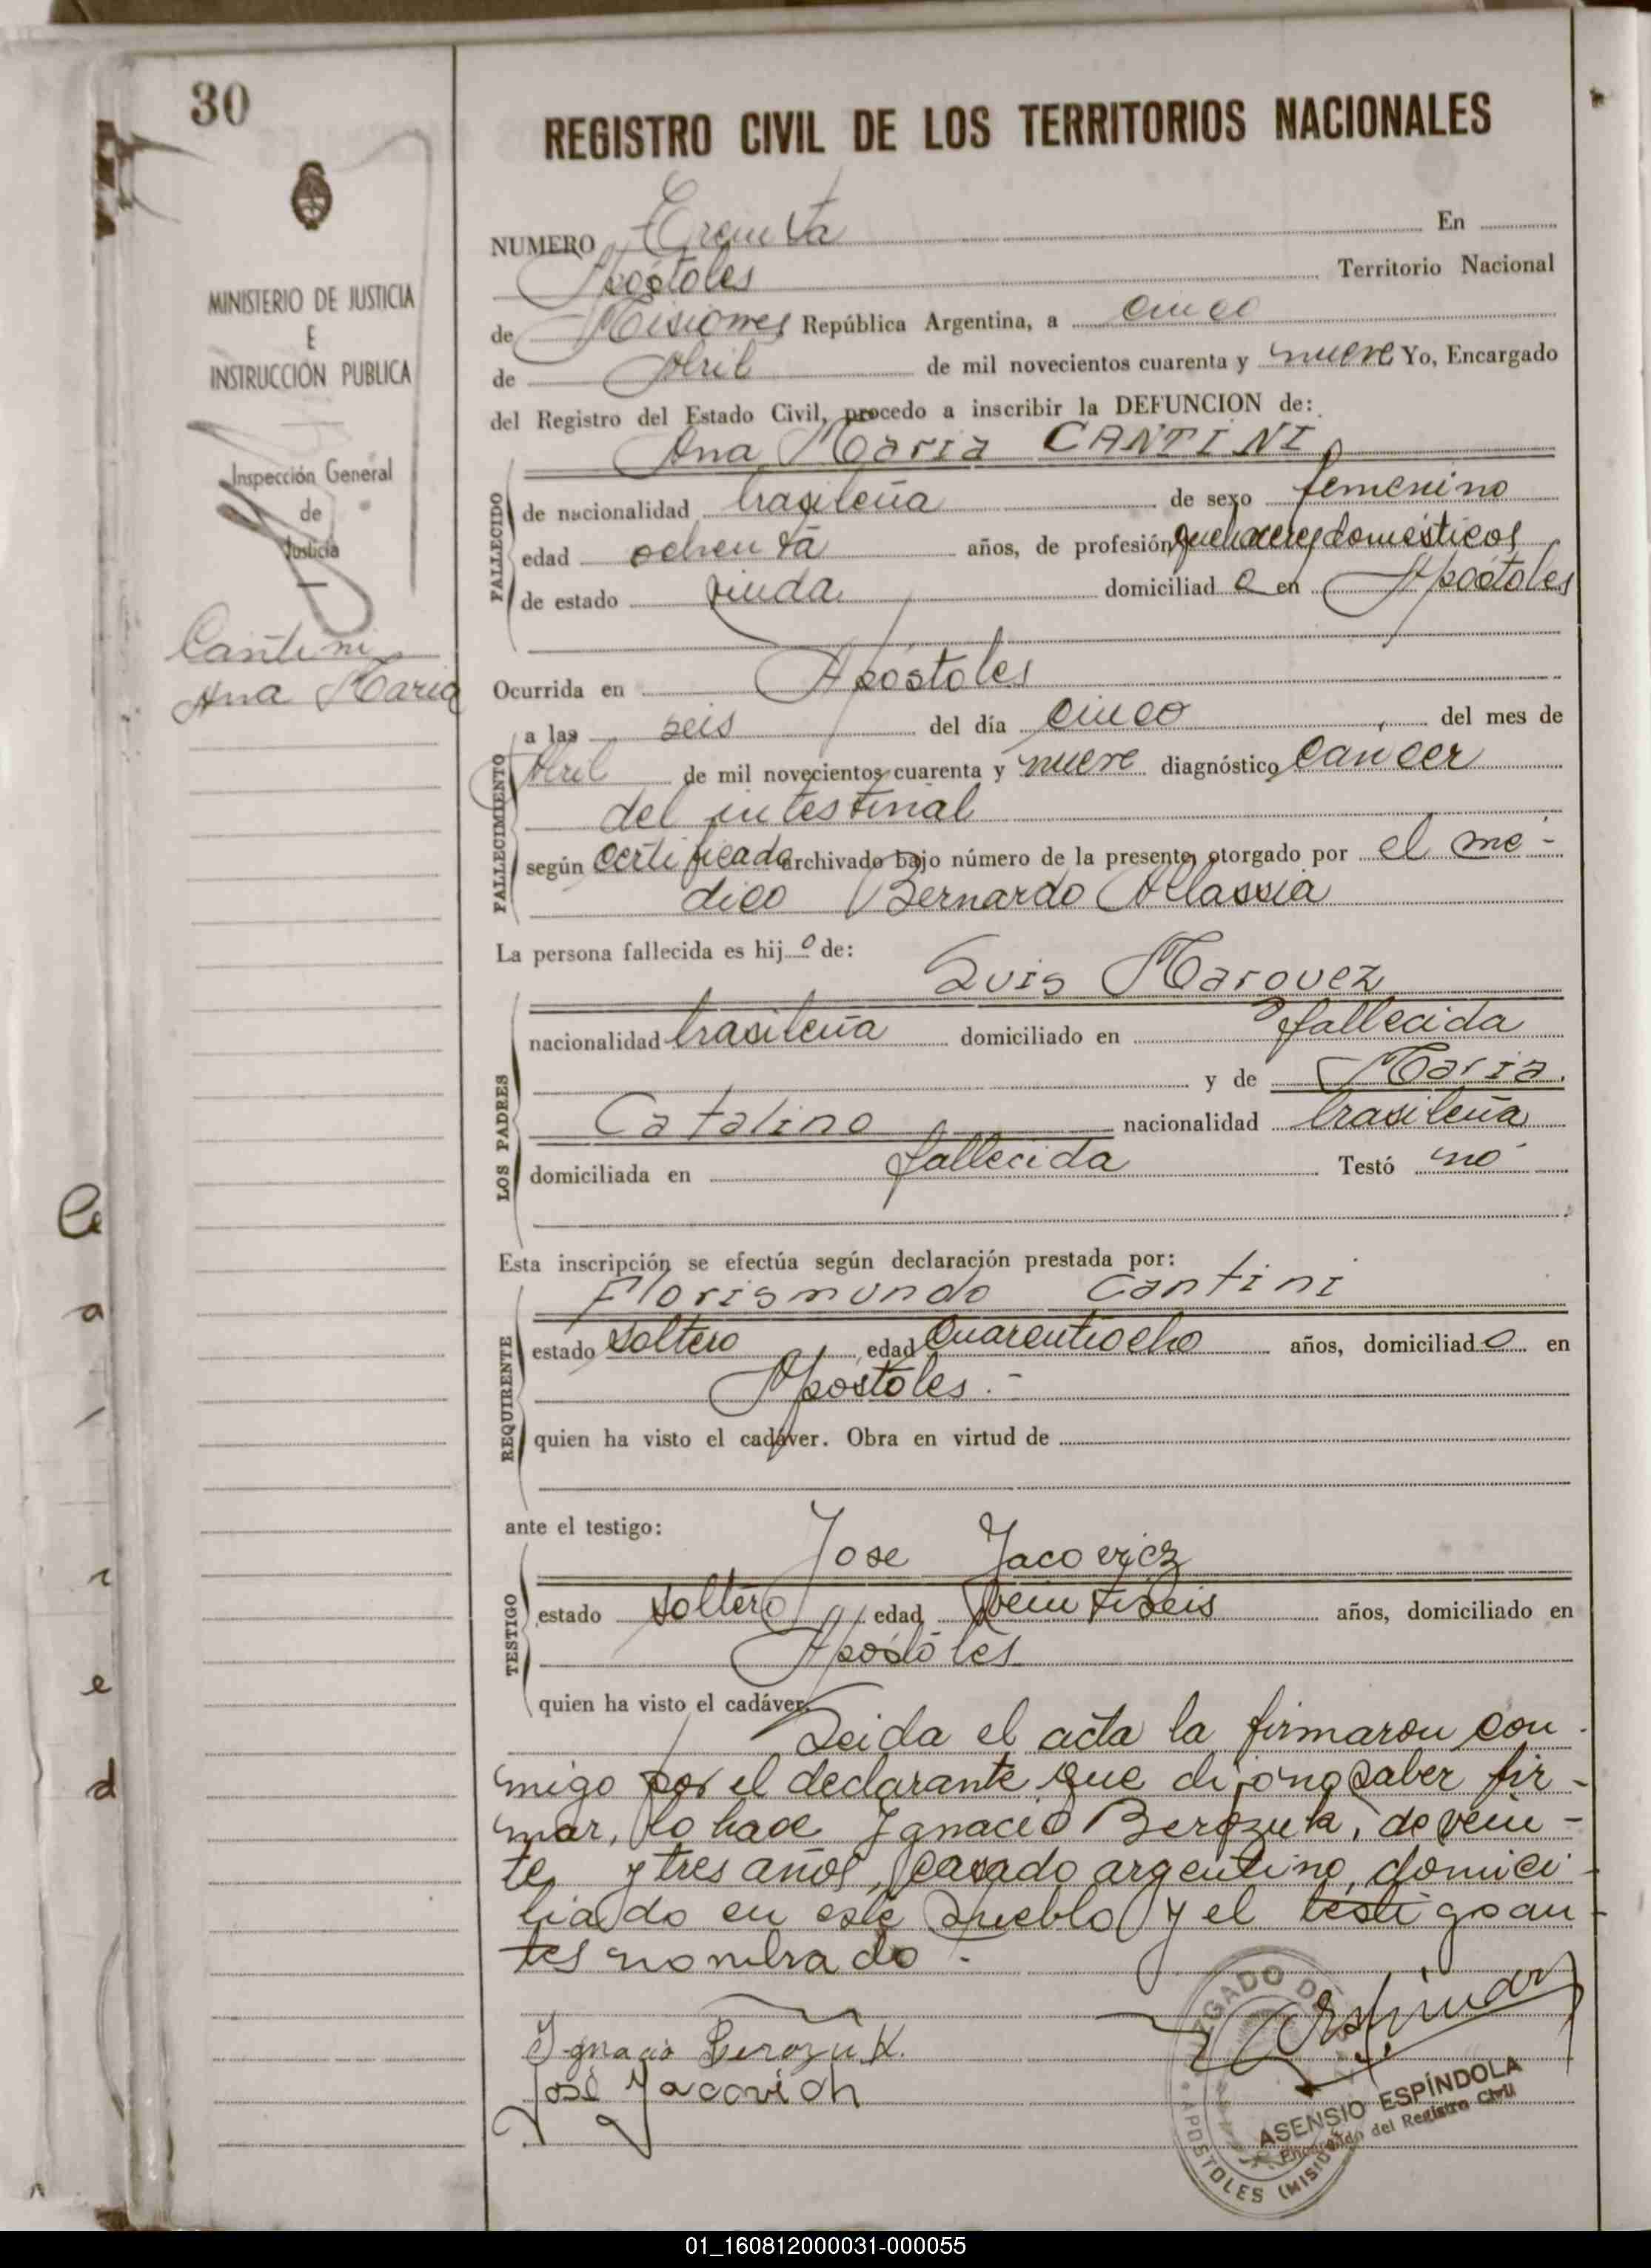 30
MINISTERIO DE JUSTICIA
E
INSTRUCCIÓN PUBLICA
Inspección General
de
Justicia
Cantini
Ana Maria
REGISTRO CIVIL DE LOS TERRITORIOS NACIONALES
NUMERO Treinta En
Apóstoles Territorio Nacional
de Misiones República Argentina, a cinco
de Abril de mil novecientos cuarenta y nueve Yo, Encargado
del Registro del Estado Civil, procedo a inscribir la DEFUNCION de:
Ana Maria CANTINI
FALLECIDO
de nacionalidad brasileña de sexo femenino
edad ochenta años, de profesión quehaceres domésticos
de estado viuda domiciliad a en Apóstoles
Ocurrida en Apóstoles
FALLECIMIENTO
a las seis del día cinco del mes de
Abril de mil novecientos cuarenta y nueve diagnóstico cancer
del intestinal
según certificado archivado bajo número de la presente, otorgado por el me-
dico Bernardo Allassia
La persona fallecida es hij o de:
Luis Marquez
LOS PADRES
nacionalidad brasileña domiciliado en fallecida
y de Maria
Catalino nacionalidad brasileña
domiciliada en fallecida Testó no
Esta inscripción se efectúa según declaración prestada por:
Florismundo Cantini
REQUIRENTE
estado soltero edad cuarentiocho años, domiciliad o en
Apostoles.-
quien ha visto el cadáver. Obra en virtud de
ante el testigo:
Jose Jacovicz
TESTIGO
estado soltero edad veintiseis años, domiciliado en
Apóstoles
quien ha visto el cadáver.
Leida el acta la firmaron con
migo por el declarante que dijo no saber fir-
mar, lo hace Ignacio Berozuk, de vein-
te y tres años, casado argentino, domici-
liado en este pueblo y el testigo an-
tes nombrado.-
Ignacio Berozuk.
José Jacovich
JUZGADO DE
APOSTOLES (MISIONES
ASENSIO ESPÍNDOLA
Encargado del Registro Civil
01_160812000031-000055